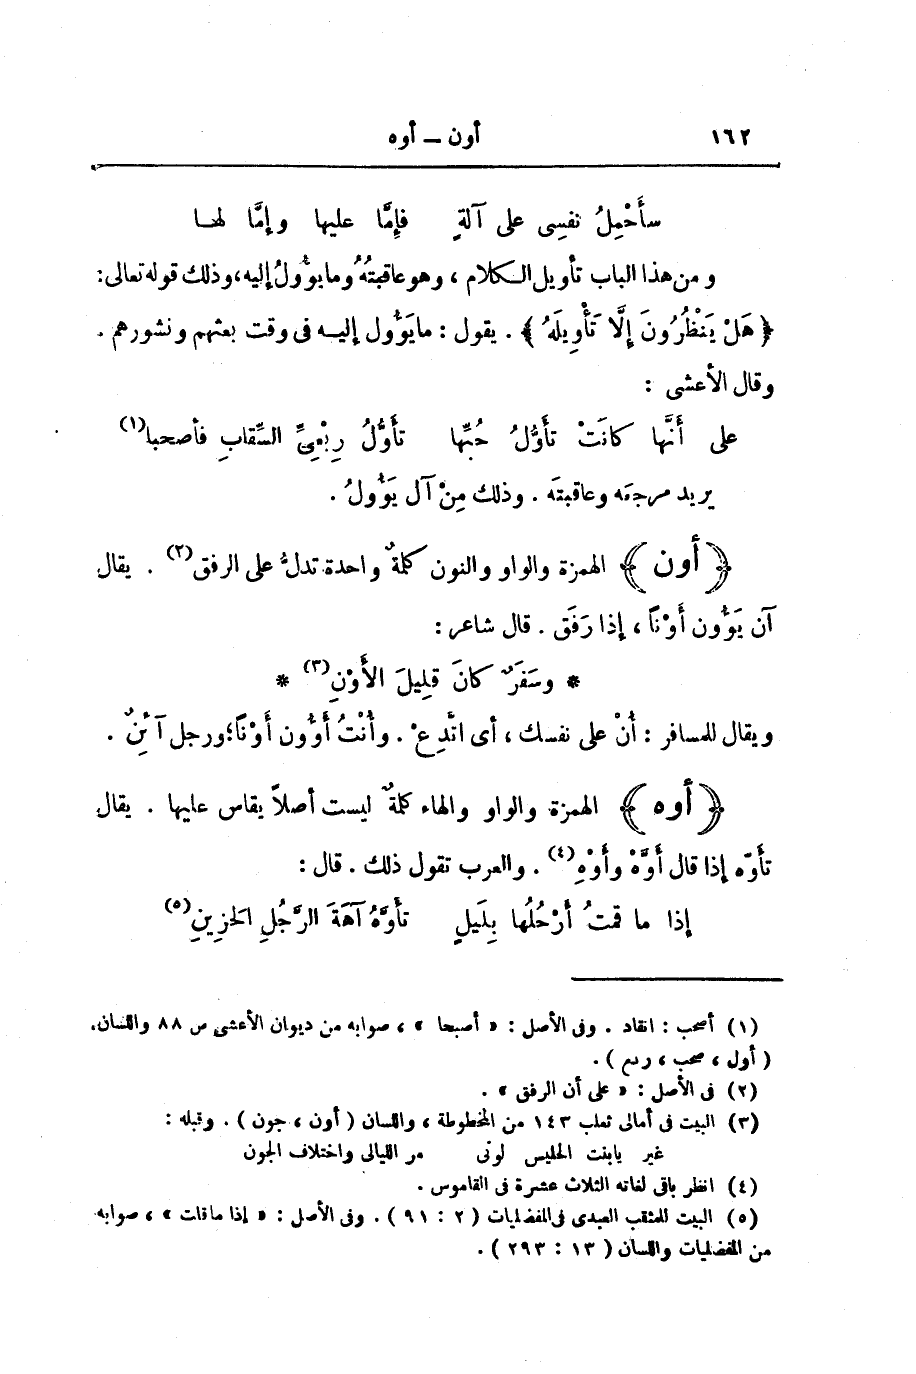 ١٦٢ أون – أوه
سأَحْمِلُ نفسِى على آلةٍ فإِمَّا عليها وإمَّا لهـا
ومن هذا الباب تأويل الـكلام ، وهو عاقبتُهُ وما يؤُولُ إليه، وذلك قوله تعالى:
﴿ هَلْ يَنْظُرُونَ إِلَّا تَأْوِيلَهُ ﴾ . يقول : ما يَؤُول إليـه فى وقت بعثهم ونشورهم .
وقال الأعشى :
على أَنَّها كانَتْ تأَوُّلُ حُبِّها تأَوُّلُ رِبْعِىِّ السِّقابِ فأصحبا(١)
يريد مرجعَه وعاقبتَه . وذلك مِنْ آل يَؤُولُ .
﴿ أون ﴾ الهمزة والواو والنون كلمةٌ واحدة تدلُّ على الرفق(٢) . يقال
آن يَؤُون أَوْنًا ، إذا رَفَق . قال شاعر :
* وسَفَرٌ كانَ قليلَ الأَوْنِ(٣) *
ويقال للمسافر : أُنْ على نفسك ، أى اتَّدِعْ . وأُنْتُ أَؤُون أَوْنًا؛ ورجل آئِنٌ .
﴿ أوه ﴾ الهمزة والواو والهاء كلمةٌ ليست أصلاً يقاس عليها . يقال
تأَوّه إذا قال أَوَّهْ وأَوْهِ(٤) . والعرب تقول ذلك . قال :
إذا ما قمتُ أَرْحُلُها بِلَيلٍ تأوَّهُ آهَةَ الرَّجُلِ الحَزِينِ(٥)
(١) أصحب : انقاد . وفى الأصل : « أصبحا » ، صوابه من ديوان الأعشى ص ٨٨ واللسان.
( أول ، صحب ، ربع ) .
(٢) فى الأصل : « على أن الرفق » .
(٣) البيت فى أمالى ثعلب ١٤٣ من المخطوطة ، واللسان ( أون ، جون ) . وقبله :
غير يابنت الحليس لونى مر الليالى واختلاف الجون
(٤) انظر باقى لغاته الثلاث عشرة فى القاموس .
(٥) البيت للمثقب العبدى فى المفضليات ( ٢ : ٩١ ) . وفى الأصل : « إذا ماقات » ، صوابه
من المفضليات واللسان ( ١٣ : ٢٩٣ ) .